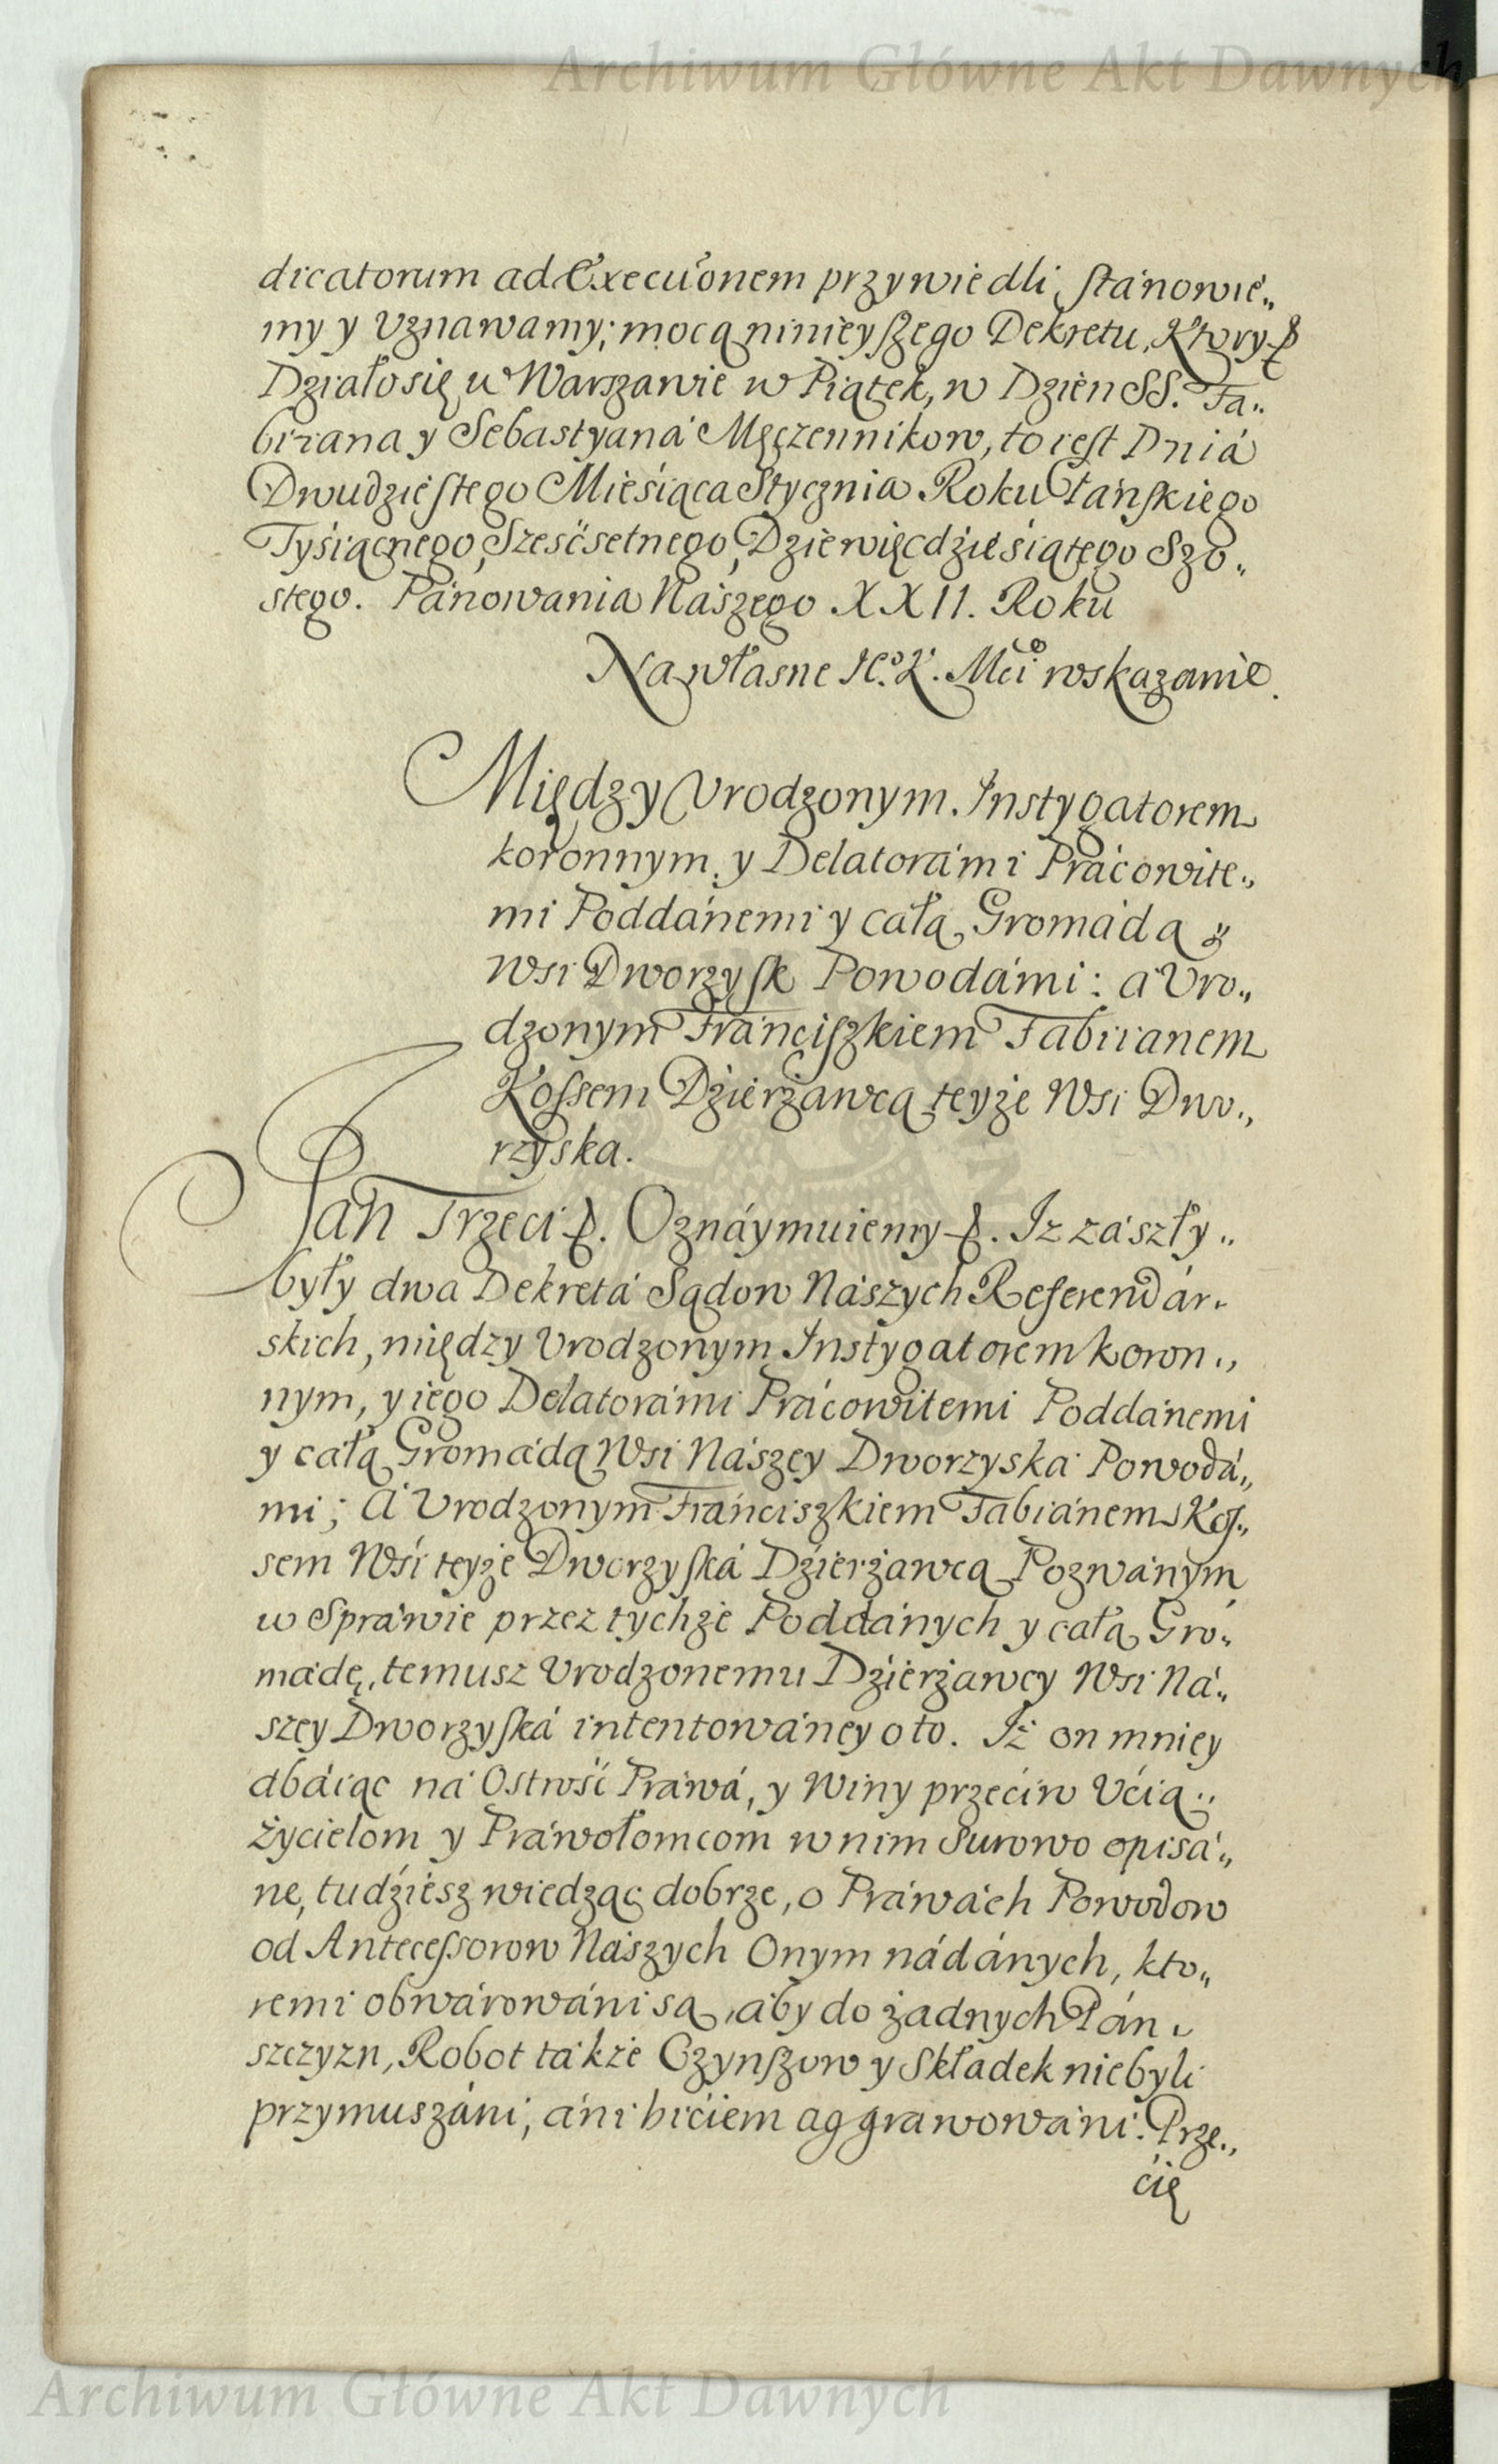 Archiwum Główne Akt Dawnych
dicatorum ad Execuõnem przywiedli, stánowie„
my y Uznawamy; mocą ninieyszego Dekretu, Ktory
Działo się w Warszawie w Piątek, w Dzien SS. Fa„
biiana y Sebastyaná Męczennikow, to iest Dniá
Dwudziestego Miesiąca Stycznia Roku Pańskiego
Tysiącnego, Szesćsetnego, Dziewięcdziesiątego Szo„
stego. Pánowania Nászego XXII. Roku
Na własne JE.º K. Mci wskazanie.
Między Urodzonym Instygatorem
koronnym, y Delatorámi Prácowite„
mi Poddánemi y całą Gromádą
Wsi Dworzysk Powodámi: á Uro„
dzonym Fránciszkiem Fabiianem
Kossem Dzierżawcą teyże Wsi Dwo„
rzyska.
Jan Trzeci. Oznáymuiemy. Iz zászły„
były dwa Dekretá Sądow Nászych Referendár„
skich, między Urodzonym Instygatorem koron„
nym, y iego Delatorámi Prácowitemi Poddánemi
y całą Gromádą Wsi Nászey Dworzyská Powodá„
mi; á Urodzonym Fránciszkiem Fabiánem Kos„
sem Wśi teyże Dworzyská Dzierżawcą Pozwánym
w Spráwie przez tychże Poddánych y całą Gro„
mádę, temusz Urodzonemu Dzierżawcy Wsi Ná„
szey Dworzyská intentowáney o to. Iż on mniey
dbáiąc ná Ostrość Práwá, y Winy przećiw Ućią„
życielom y Práwołomcom w nim Surowo opisá„
ne, tudźiesz wiedząc dobrze, o Práwách Powodow
od Antecessorow Nászych Onym nádánych, kto„
remi obwárowáni są, áby do żadnych Pán„
szczyzn, Robot tákże Czynszow y Składek niebyli
przymuszáni, áni bićiem aggrawowáni. Prze„
cię
Archiwum Główne Akt Dawnych